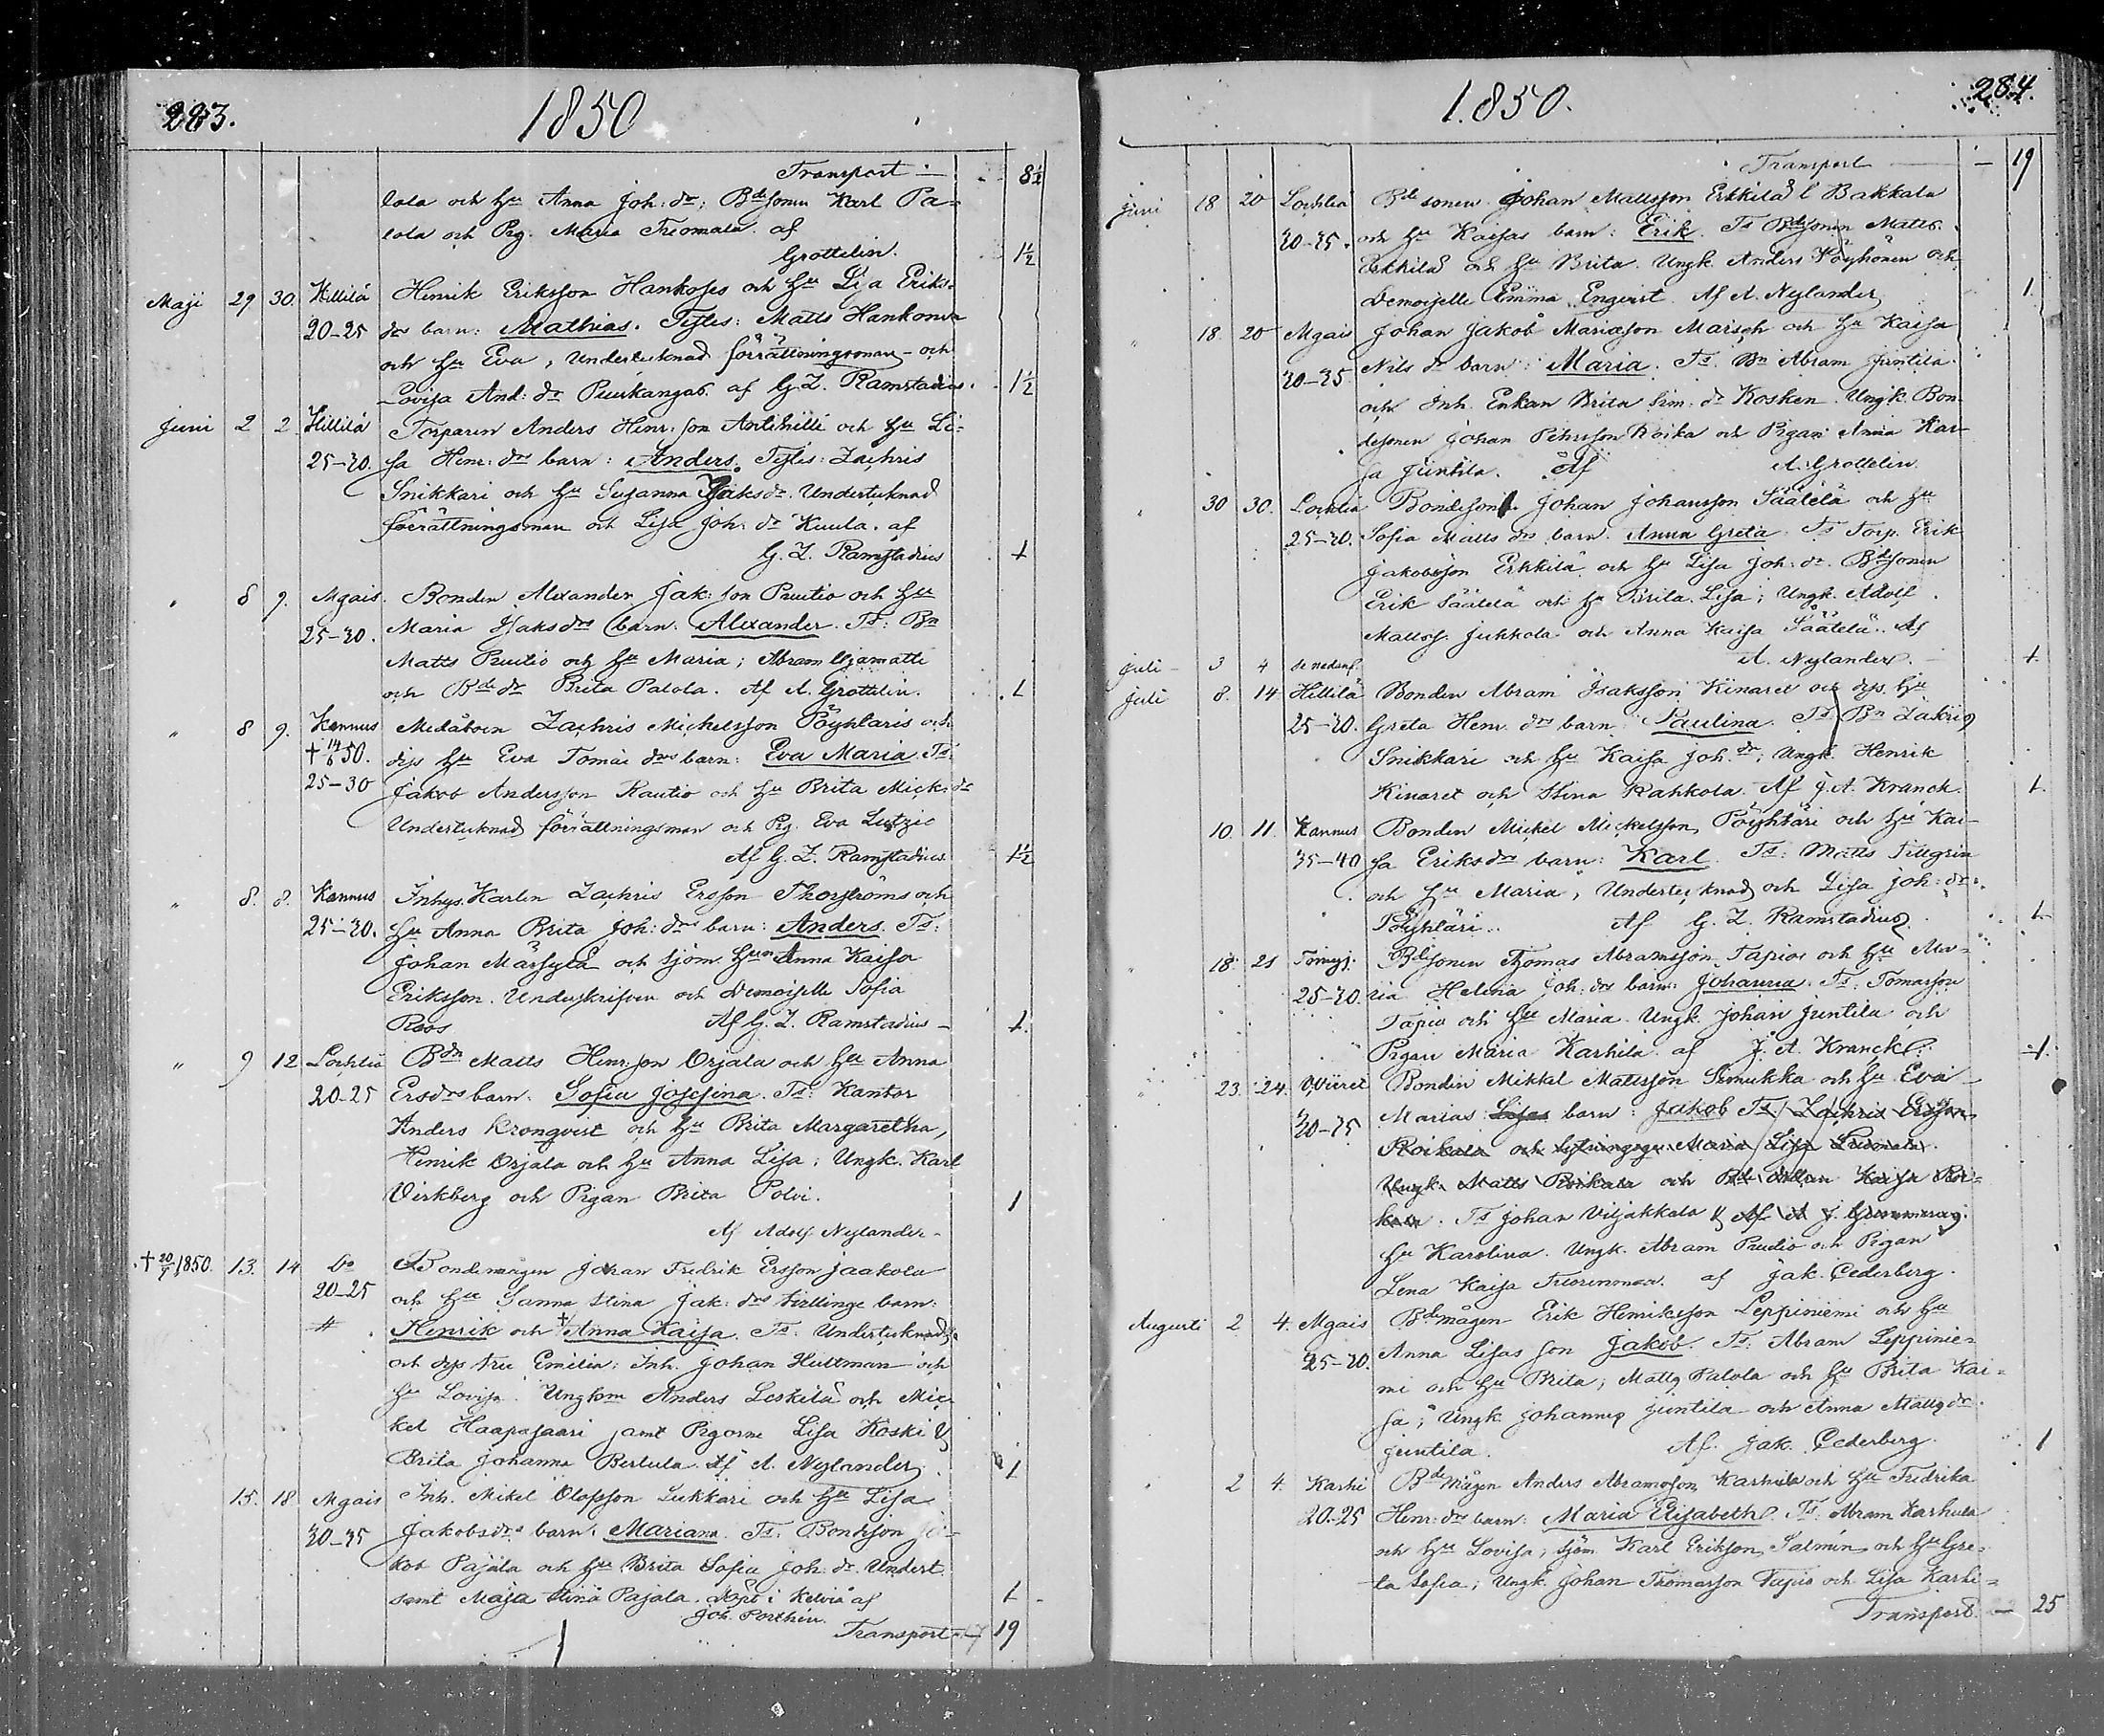 283.
1850
Transport — 8½
lola och Hu Anna Joh: dr; Bdesonen Karl Pa-
lola och Pig. Maria Tiomala. af
Grottelin. 1½
Maji 29 30. Hillilä Henrik Eriksson Hankoses och Hu Lisa Eriks-
20-25 drs barn: Mathias. Testes: Matts Hankonen
och Hu Eva, Undertecknad förrättningsman och
Lovisa And: dr Puukangas. af G. Z. Ramstadius. 1½
Juni 2 2 Hillilä Torparen Anders Henr: son Anttihilli och Hu Li-
25-30. sa Henr: drs barn: Anders. Testes: Zachris
Snikkari och Hu Susanna Isaks dr. Undertecknad
förrättningsman och Lisa Joh: dr Kuula. af
G. Z. Ramstadius 1
" 8 9. Mgais. Bonden Alexander Jak: son Pruutio och Hu
25-30. Maria Isaks drs barn: Alexander. Ts: Bn
Matts Pruutio och Hu Maria; Abram Ujamatti
och Bde dr Brita Palola. Af A. Grottelin. 1
" 8 9. Kannus Medåboen Zachris Michelsson Pöyhtäris och
† 14/6 50. dess Hu Eva Tomas drs barn: Eva Maria. Ts:
25-30 Jakob Andersson Rautio och Hu Brita Mick: dr
Undertecknad förrättningsman och Pig. Eva
Af G. Z. Ramstadius. 1½
" 8. 8. Kannus Inhys. Karlen Zachris Ersson Thorströms och
25-30. Hu Anna Brita Joh: drs barn: Anders. Ts:
Johan Märsylä och sjöm. Hun Anna Kaisa
Eriksson. Underskrifven och Demoiselle Sofia
Roos Af G. Z. Ramstadius — 1.
" 9 12 Lochteå Bdn Matts Henr. son Orjala och Hu Anna
20-25 Ers drs barn. Sofia Josefina. Ts: Kantor
Anders Kronqvist och Hu Brita Margaretha,
Henrik Orjala och Hu Anna Lisa; Ungk. Karl
Virkberg och Pigan Brita Polvi. 1
Af Adolf Nylander.
† 20/7 1850. 13. 14 Do Bondemågen Johan Fredrik Ersson Jaakola
20-25 och Hu Sanna Stina Jak: drs tvillinge barn:
# Henrik och † Anna Kaisa. Ts. Undertecknad
och dess fru Emilia; Inh. Johan Hultman och
Hu Lovisa. Ungkarne Anders Leskelä och Mic-
kel Haapasaari samt Pigorne Lisa Koski &
Brita Johanna Bertula. Af A. Nylander. 1
15. 18 Mgais Inh. Mikel Olofsson Lukkari och Hu Lisa
30-35 Jakobs drs barn: Mariana. Ts: Bondsson Ja-
kob Pajala och Hu Brita Sofia Joh. dr. Undert.
samt Maja Stina Pajala. Döpt i Kelviå af 1
Joh. Porthén.
Transport — 19
1850.
284.
Transport — 19
Juni 18 20 Lochteå Bdesonen Johan Mattsson Erkkilä l Bakkala
30-35. och Hu Kaisas barn: Erik. Ts Bdesonen Matts
Erkkilä och Hu Brita. Ungk. Anders Pöyhönen och
Demoiselle Emma Enqvist. Af A. Nylander 1
" 18. 20 Mgais Johan Jakob Mariasson Mars och Hu Kaisa
30-35. Nils dr barn: Maria. Ts. Bn Abram Juntila
och Inh. Enkan Brita Sim: dr Kosken. Ungk. Bon-
desonen Johan Pehrsson Roika och Pigan Anna Kai-
sa Juntila. Af A. Grottelin.
" 30 30. Lochteå Bondeson Johan Johansson Säätelä och Hu
25-30. Sofia Matts drs barn. Anna Greta. Ts Torp. Erik
Jakobsson Erkkilä och Hu Lisa Joh: dr. Bdesonen
Erik Säätelä och Hu Brita Lisa; Ungk. Adolf
Mattss. Jukkola och Anna Kaisa Säätelä. Af
Juli 3 4 se nedanf. A. Nylander. — 1
Juli 8. 14 Hillilä Bonden Abram Isaksson Kinaret och dess Hu
25-30. Greta Henr. drs barn Paulina. Ts. Bn Zakris
Snikkari och Hu Kaisa Joh. dr; Ungk. Henrik
Kinaret och Stina Rahkola. Af J. A. Kranck. 1
10. 11. Kannus Bonden Mickel Mickelsson Pöyhtäri och Hu Kai-
35-40 sa Eriks drs barn: Karl. Ts: Matts Pilegrin
och Hu Maria, Undertecknad och Lisa Joh: dr
Pöyhtäri. Af G. Z. Ramstadius. 1
" 18. 21 Bdesonen Thomas Abramsson Tapios och Hu Ma-
25-30. ria Helena Joh: drs barn: Johanna. Ts: Tomasson
Tapio och Hu Maria. Ungk. Johan Juntila och
Pigan Maria Karhila. af J. A. Kranck. 1.
" 23. 24. Wiiret Bonden Mikkel Mattsson Simukka och Hu Eva
30-35 Marias Lisas barn: Jakob Ts: Zachris Ersson
Roikala och Maria Lisa
Ungk. Matts Roikala och Bde dottren Kaisa Roi-
kala. Ts Johan Viljakkala & Af A. J.
Hu Karolina. Ungk. Abram Prudio och Pigan
Lena Kaisa af Jak. Cederberg.
Augusti 2 4. Mgais Bdemågen Erik Henriksson Leppiniemi och Hu
25-30. Anna Lisas son Jakob. Ts: Abram Leppinie-
mi och Hu Brita; Matts Palola och Hu Brita Kai-
sa; Ungk. Johannes Juntila och Anna Matts dr.
Juntila. Af. Jak. Cederberg. 1
" 2 4. Karhi Bdemågen Anders Abramsson Karhula och Hu Fredrika
20-25 Henr: drs barn: Maria Elisabeth. Ts: Abram Karhula
och Hu Lovisa, Sjöm. Karl Erikson Salmén och Hu Gre-
ta Sofia; Ungk. Johan Thomasson Tapio och Lisa Karhi-
Transport. — 25